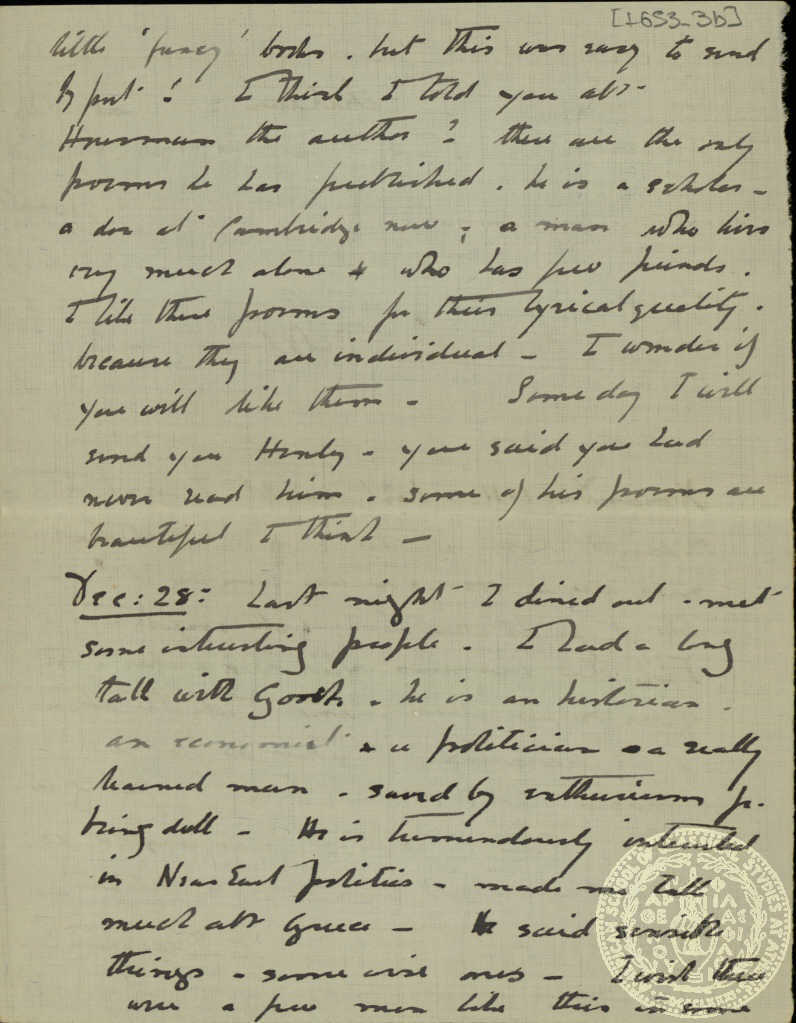 [1653-3b]
little 'fancy' books. but this was easy to send
by post! I think I told you abt
Housman the author? these are the only
poems he has published. he is a scholar -
a don at Cambridge now; a man who lives
very much alone & who has few friends.
I like these poems for their lyrical quality.
because they are individual - I wonder if
you will like them - Some day I will
send you Henley - you said you had
never read him. some of his poems are
beautiful I think -
Dec: 28: Last night I dined out - met
some interesting people. I had a long
talk with Gooch. he is an historian.
an economist & a politician - a really
learned man - saved by enthusiasms fr.
being dull - He is tremendously interested
in Near East politics - made me talk
much abt Greece - He said sensible
things - some wise ones - I wish there
were a few men like this in some
AMERICAN SCHOOL OF CLASSICAL STUDIES AT ATHENS